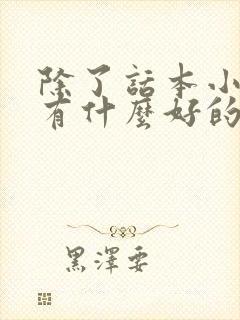 除了話本小
有什麼好的
黑澤要